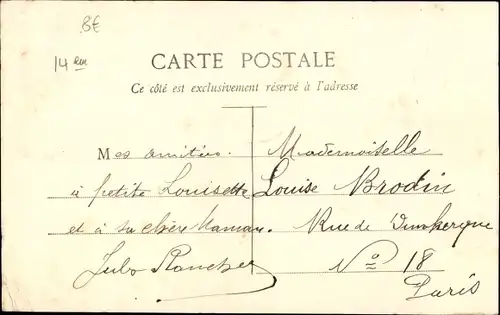 8E
14em
CARTE POSTALE
Ce côté est exclusivement réservé à l'adresse
Mes amitiés
à petite Louisette
et à sa chère Maman.
Jules
Mademoiselle
Louise Brodin
Rue de Dunkerque
No 18
Paris